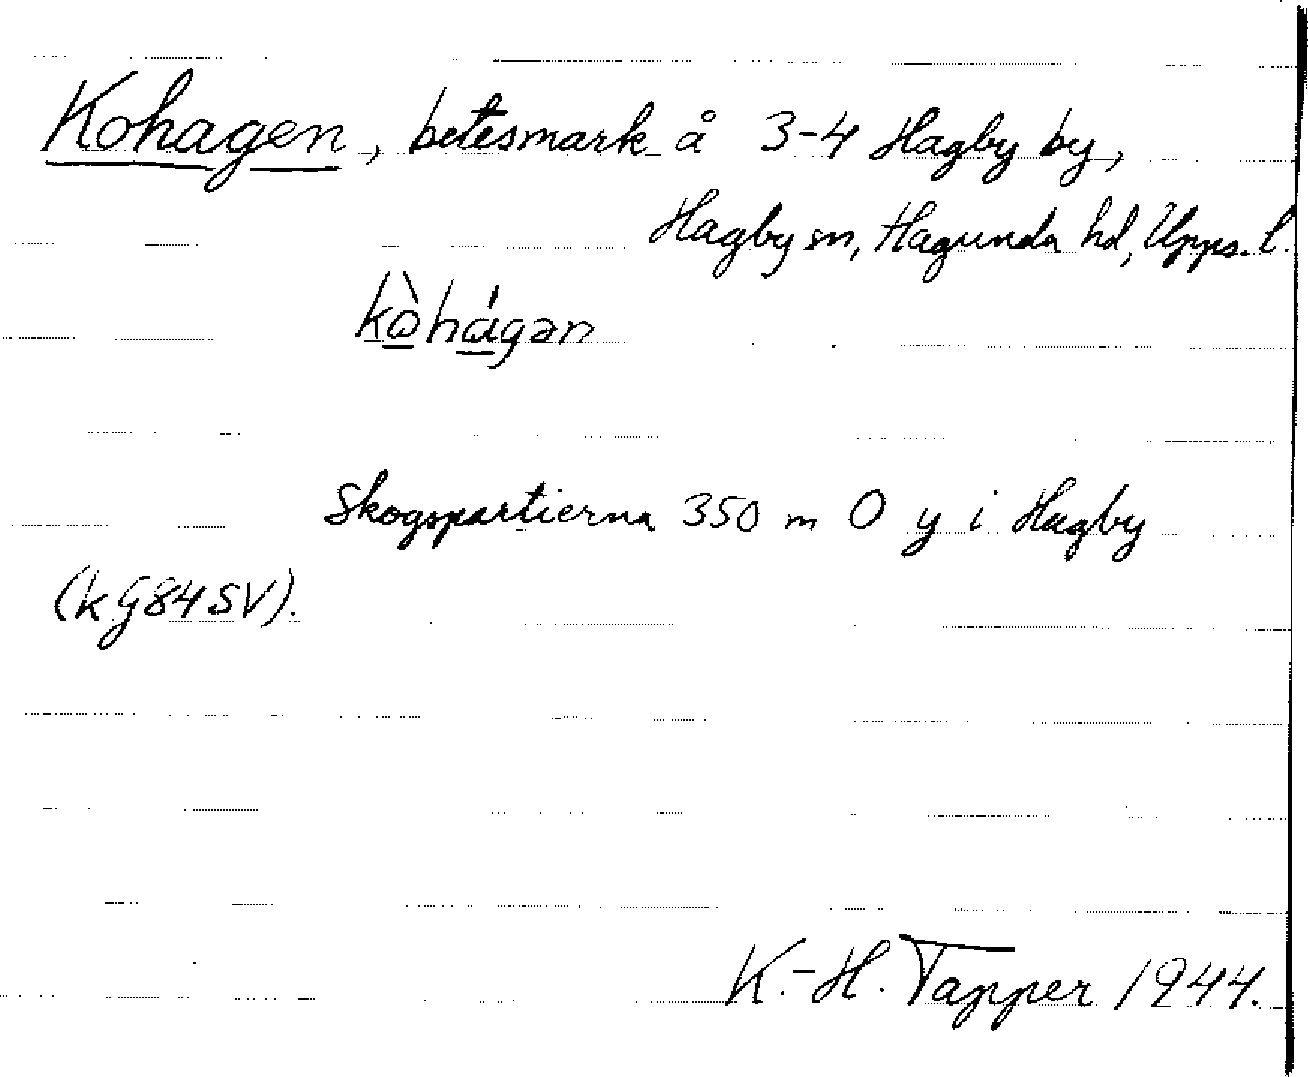 Kohagen, betesmark å 3-4 Hagby by,
Hagby sn, Hagunda hd, Upps. l.
kòhágən
Skogspartierna 350 m O y i Hagby
(k G84SV).
K.-H. Tapper 1944.